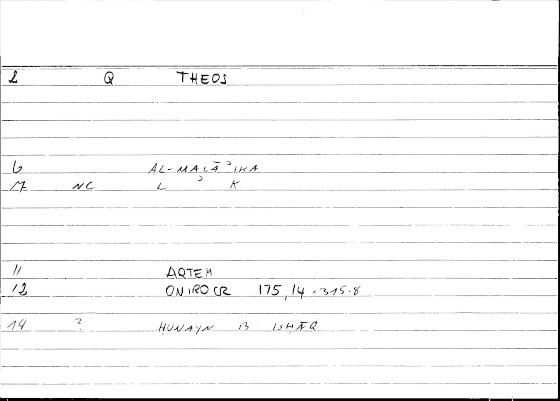 2 Q THEOS
6 AL-MALĀʾIKA
17 NC L ʾ K
11 ARTEM
12 ONIROCR 175,14 = 315.8
14 ? HUNAYN B ISHĀQ